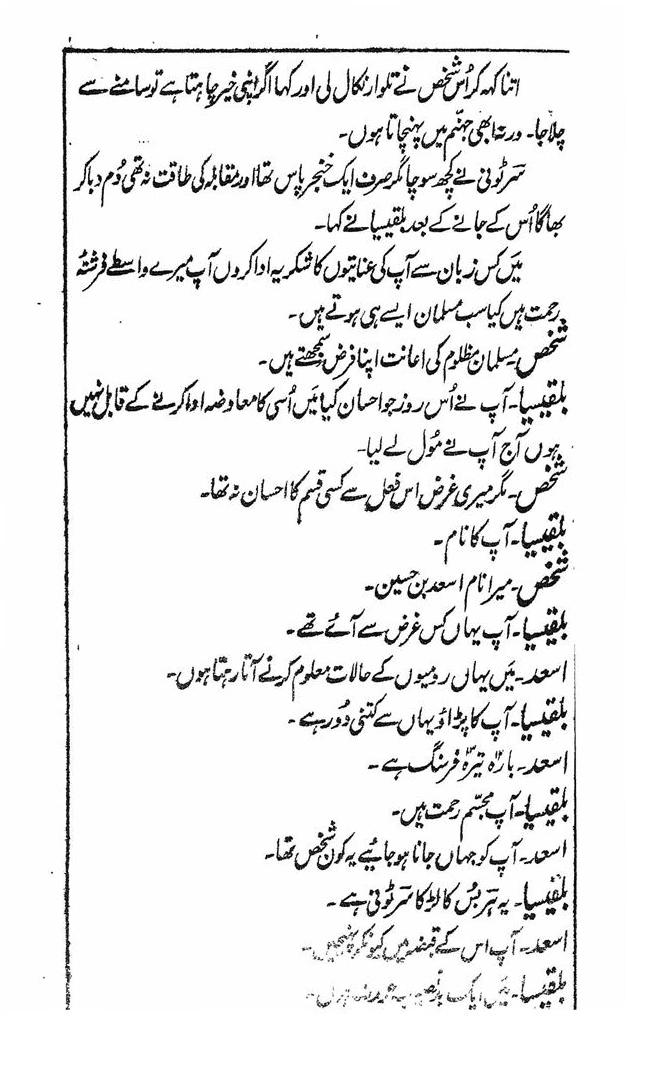 اتنا کہہ کر اُس شخص نے تلوار نکال لی اور کہا اگر اپنی خیر چاہتا ہے تو سامنے سے
چلا جا۔ ورنہ ابھی جہنّم میں پہنچاتا ہوں۔
سَرٹونی نے کچھ سوچا مگر صرف ایک خنجر پاس تھا اور مقابلہ کی طاقت نہ تھی دُم دبا کر
بھاگا اُس کے جانے کے بعد بلقیسیا نے کہا۔
مَیں کس زبان سے آپ کی عنایتوں کا شکریہ ادا کروں آپ میرے واسطے فرشتۂ
رحمت ہیں کیا سب مسلمان ایسے ہی ہوتے ہیں۔
شخص۔ مسلمان مظلوم کی اعانت اپنا فرض سمجھتے ہیں۔
بلقیسیا۔ آپ نے اُس روز جو احسان کیا مَیں اُسی کا معاوضہ ادا کرنے کے قابل نہیں
ہوں آج آپ نے مُول لے لیا۔
شخص۔ مگر میری غرض اس فعل سے کسی قسم کا احسان نہ تھا۔
بلقیسیا۔ آپ کا نام۔
شخص۔ میرا نام اسعد بن حسین۔
بلقیسیا۔ آپ یہاں کس غرض سے آئے تھے۔
اسعد۔ مَیں یہاں رومیوں کے حالات معلوم کرنے آتا رہتا ہوں۔
بلقیسیا۔ آپ کا پڑاؤ یہاں سے کتنی دُور ہے۔
اسعد۔ بارہ تیرہ فرسنگ ہے۔
بلقیسیا۔ آپ مجسّم رحمت ہیں۔
اسعد۔ آپ کو جہاں جانا ہو جائیے یہ کون شخص تھا۔
بلقیسیا۔ یہ ہَربُس کا لڑکا سَرٹونی ہے۔
اسعد۔ آپ اس کے قبضہ میں کیونکر پہنچیں۔
بلقیسیا۔ مَیں ایک بدنصیب ہوں۔